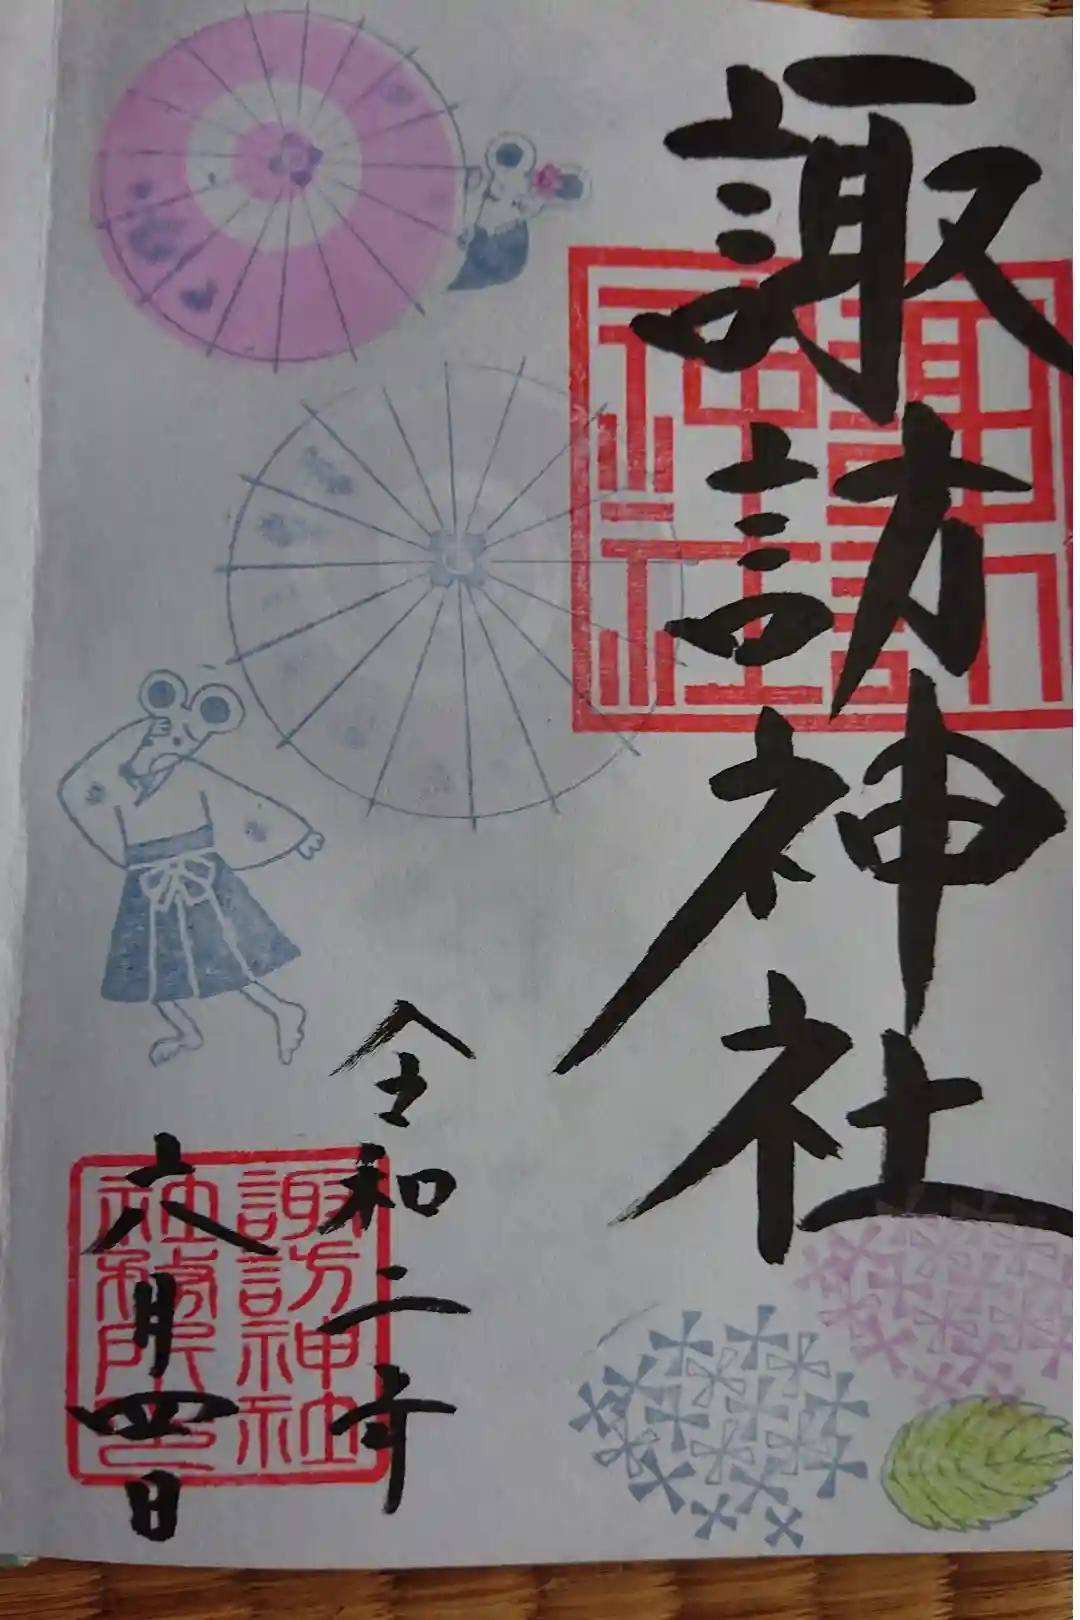 諏訪神社
諏訪神社
令和二年
六月四日
諏訪神社
社務所印